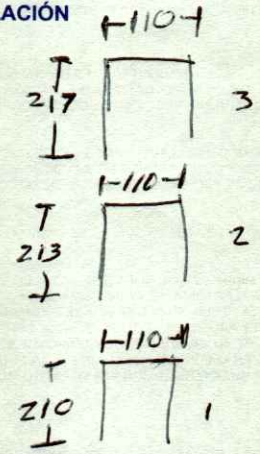 ACIÓN
110
217
3
110
213
2
110
210
1